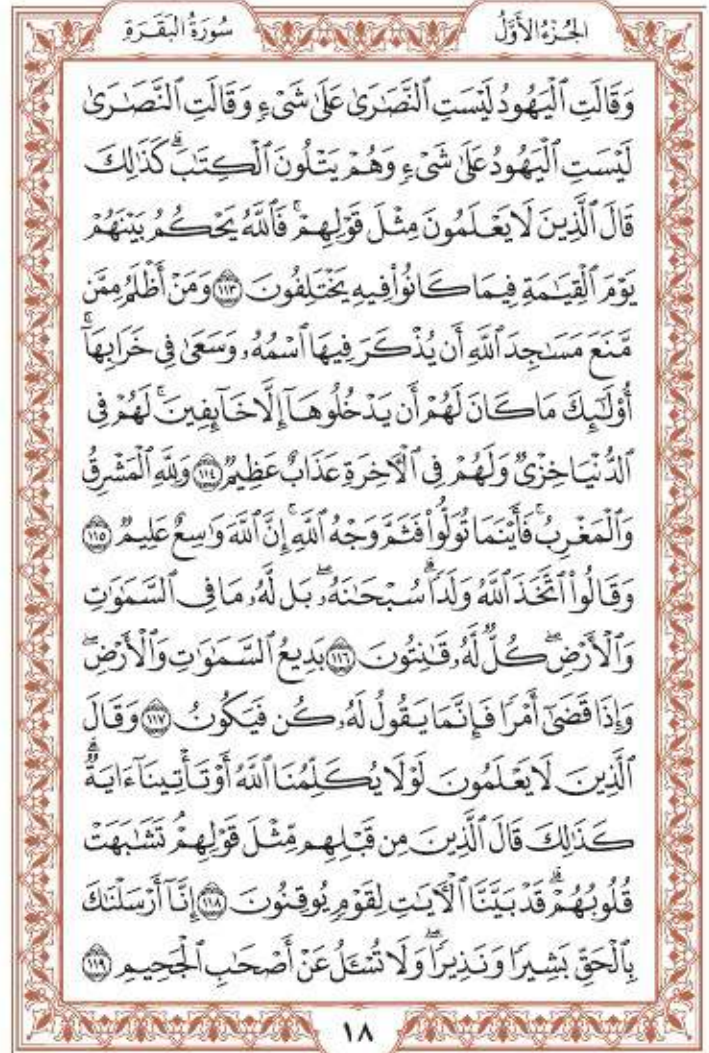 الجُزْءُ الأَوَّلُ
سُورَةُ الْبَقَرَةِ
وَقَالَتِ ٱلۡيَهُودُ لَيۡسَتِ ٱلنَّصَٰرَىٰ عَلَىٰ شَيۡءٖ وَقَالَتِ ٱلنَّصَٰرَىٰ
لَيۡسَتِ ٱلۡيَهُودُ عَلَىٰ شَيۡءٖ وَهُمۡ يَتۡلُونَ ٱلۡكِتَٰبَۗ كَذَٰلِكَ
قَالَ ٱلَّذِينَ لَا يَعۡلَمُونَ مِثۡلَ قَوۡلِهِمۡۚ فَٱللَّهُ يَحۡكُمُ بَيۡنَهُمۡ
يَوۡمَ ٱلۡقِيَٰمَةِ فِيمَا كَانُواْ فِيهِ يَخۡتَلِفُونَ ١١٣ وَمَنۡ أَظۡلَمُ مِمَّن
مَّنَعَ مَسَٰجِدَ ٱللَّهِ أَن يُذۡكَرَ فِيهَا ٱسۡمُهُۥ وَسَعَىٰ فِي خَرَابِهَآۚ
أُوْلَٰٓئِكَ مَا كَانَ لَهُمۡ أَن يَدۡخُلُوهَآ إِلَّا خَآئِفِينَۚ لَهُمۡ فِي
ٱلدُّنۡيَا خِزۡيٞ وَلَهُمۡ فِي ٱلۡأٓخِرَةِ عَذَابٌ عَظِيمٞ ١١٤ وَلِلَّهِ ٱلۡمَشۡرِقُ
وَٱلۡمَغۡرِبُۚ فَأَيۡنَمَا تُوَلُّواْ فَثَمَّ وَجۡهُ ٱللَّهِۚ إِنَّ ٱللَّهَ وَٰسِعٌ عَلِيمٞ ١١٥
وَقَالُواْ ٱتَّخَذَ ٱللَّهُ وَلَدٗاۗ سُبۡحَٰنَهُۥۖ بَل لَّهُۥ مَا فِي ٱلسَّمَٰوَٰتِ
وَٱلۡأَرۡضِۖ كُلّٞ لَّهُۥ قَٰنِتُونَ ١١٦ بَدِيعُ ٱلسَّمَٰوَٰتِ وَٱلۡأَرۡضِۖ
وَإِذَا قَضَىٰٓ أَمۡرٗا فَإِنَّمَا يَقُولُ لَهُۥ كُن فَيَكُونُ ١١٧ وَقَالَ
ٱلَّذِينَ لَا يَعۡلَمُونَ لَوۡلَا يُكَلِّمُنَا ٱللَّهُ أَوۡ تَأۡتِينَآ ءَايَةٞۗ
كَذَٰلِكَ قَالَ ٱلَّذِينَ مِن قَبۡلِهِم مِّثۡلَ قَوۡلِهِمۡۘ تَشَٰبَهَتۡ
قُلُوبُهُمۡۗ قَدۡ بَيَّنَّا ٱلۡأٓيَٰتِ لِقَوۡمٖ يُوقِنُونَ ١١٨ إِنَّآ أَرۡسَلۡنَٰكَ
بِٱلۡحَقِّ بَشِيرٗا وَنَذِيرٗاۖ وَلَا تُسۡـَٔلُ عَنۡ أَصۡحَٰبِ ٱلۡجَحِيمِ ١١٩
١٨